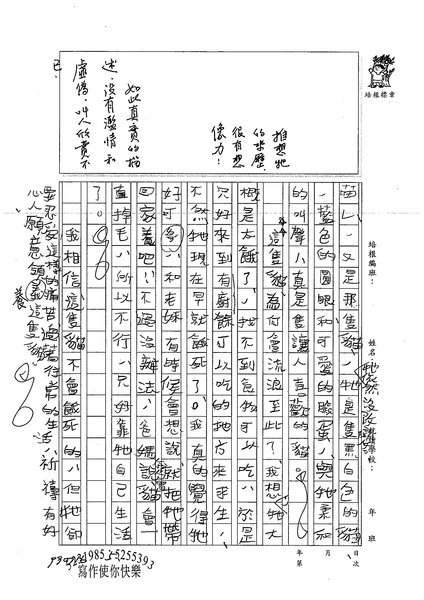 培根標章
培根編班：
姓名：
就讀學校：
年　班
月　日
年　第　次
喵～又是那隻貓，牠是隻黑白色的貓
，藍色的圓眼和可愛的臉蛋，與牠柔和
的叫聲，真是隻讓人喜歡的貓。
這隻貓為何會流浪至此？我想牠大
概是太餓了，找不到食物可以吃，於是
只好來到有廚餘可以吃的地方來求生，
不然牠現在早就餓死了。我真的覺得牠
好可憐，和老妹有時候會想說就把牠帶
回家養吧！不過沒辦法，爸媽說貓會一
直掉毛，所以不行，只好靠牠自己生活
了。
我相信這隻貓不會餓死的，但牠卻
要忍受這樣的痛苦過著往常的生活，祈禱有好
心人願意領養這隻貓。
推想牠
的來歷，
很有想
像力！
如此真實的描
述，沒有濫情和
虛偽，叫人欣賞不
已．
寫作使你快樂